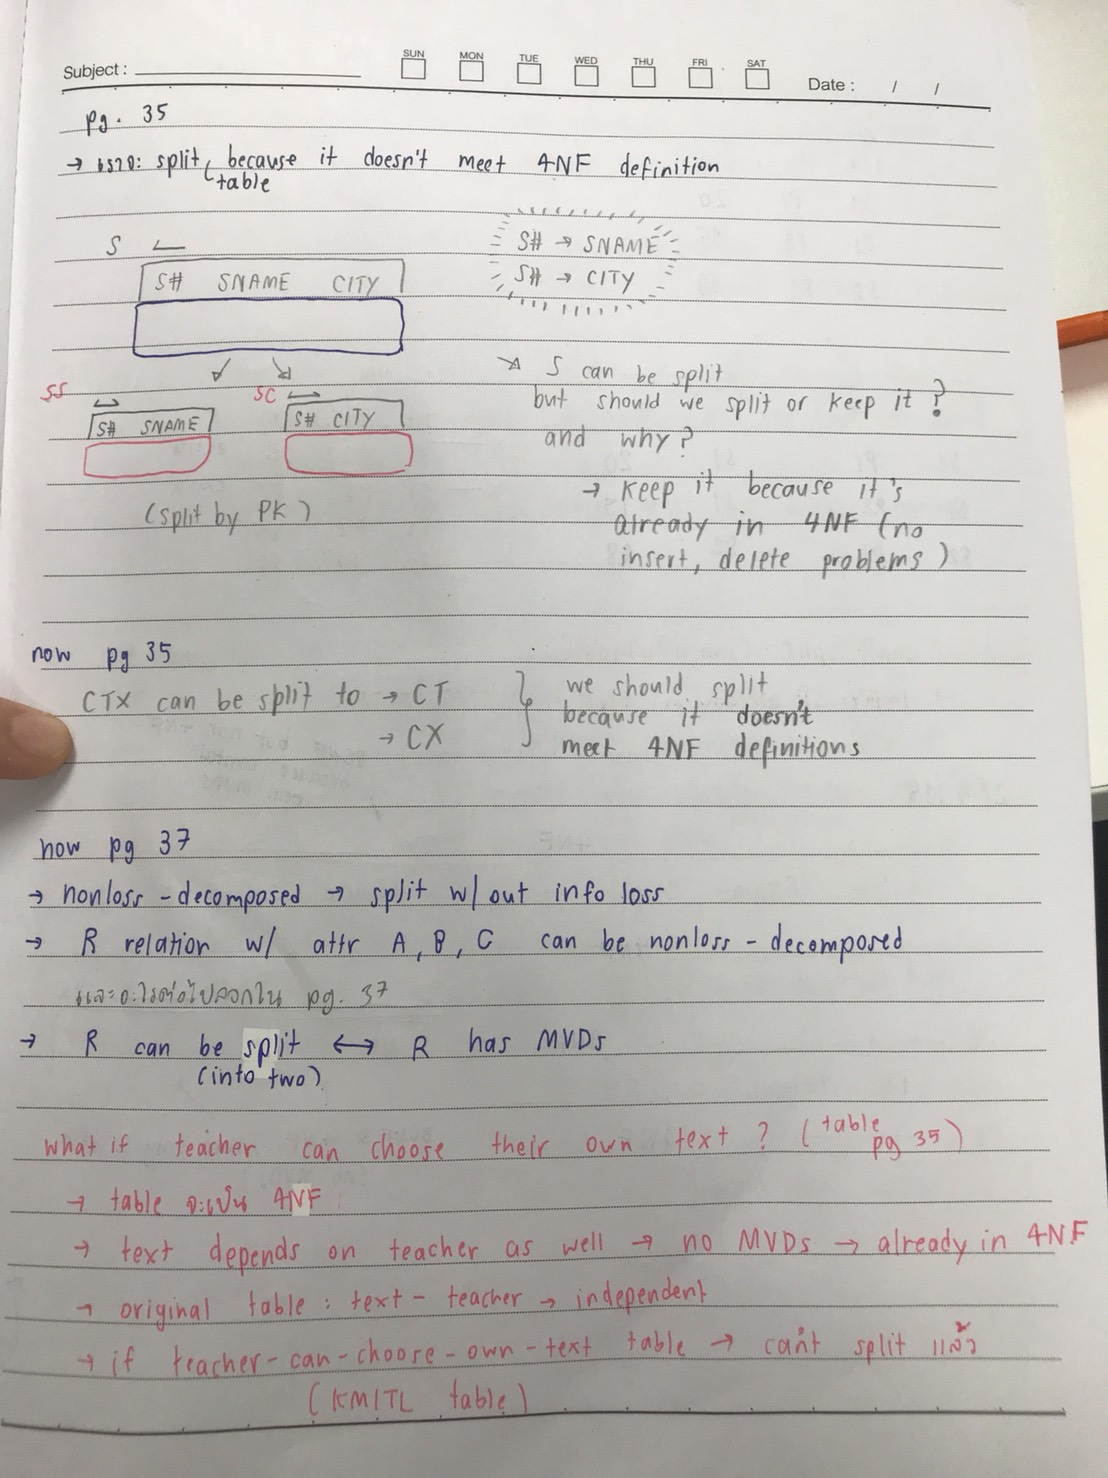 Subject :
SUN MON TUE WED THU FRI SAT
Date : / /
pg. 35
→ เราจะ split because it doesn't meet 4NF definition
table
S
S# SNAME CITY
S# → SNAME
S# → CITY
SS
S# SNAME
SC
S# CITY
(split by PK)
S can be split
but should we split or keep it ?
and why?
→ keep it because it's
already in 4NF (no
insert, delete problems)
now pg 35
CTX can be split to → CT
→ CX
we should split
because it doesn't
meet 4NF definitions
now pg 37
→ nonloss-decomposed → split w/out info loss
→ R relation w/ attr A, B, C can be nonloss-decomposed
และอะไรต่อไปลอกใน pg. 37
→ R can be split ↔ R has MVDs
(into two)
What if teacher can choose their own text ? (table pg 35)
→ table จะเป็น 4NF
→ text depends on teacher as well → no MVDs → already in 4NF
→ original table : text - teacher → independent
→ if teacher-can-choose-own-text table → can't split แล้ว
(KMITL table)